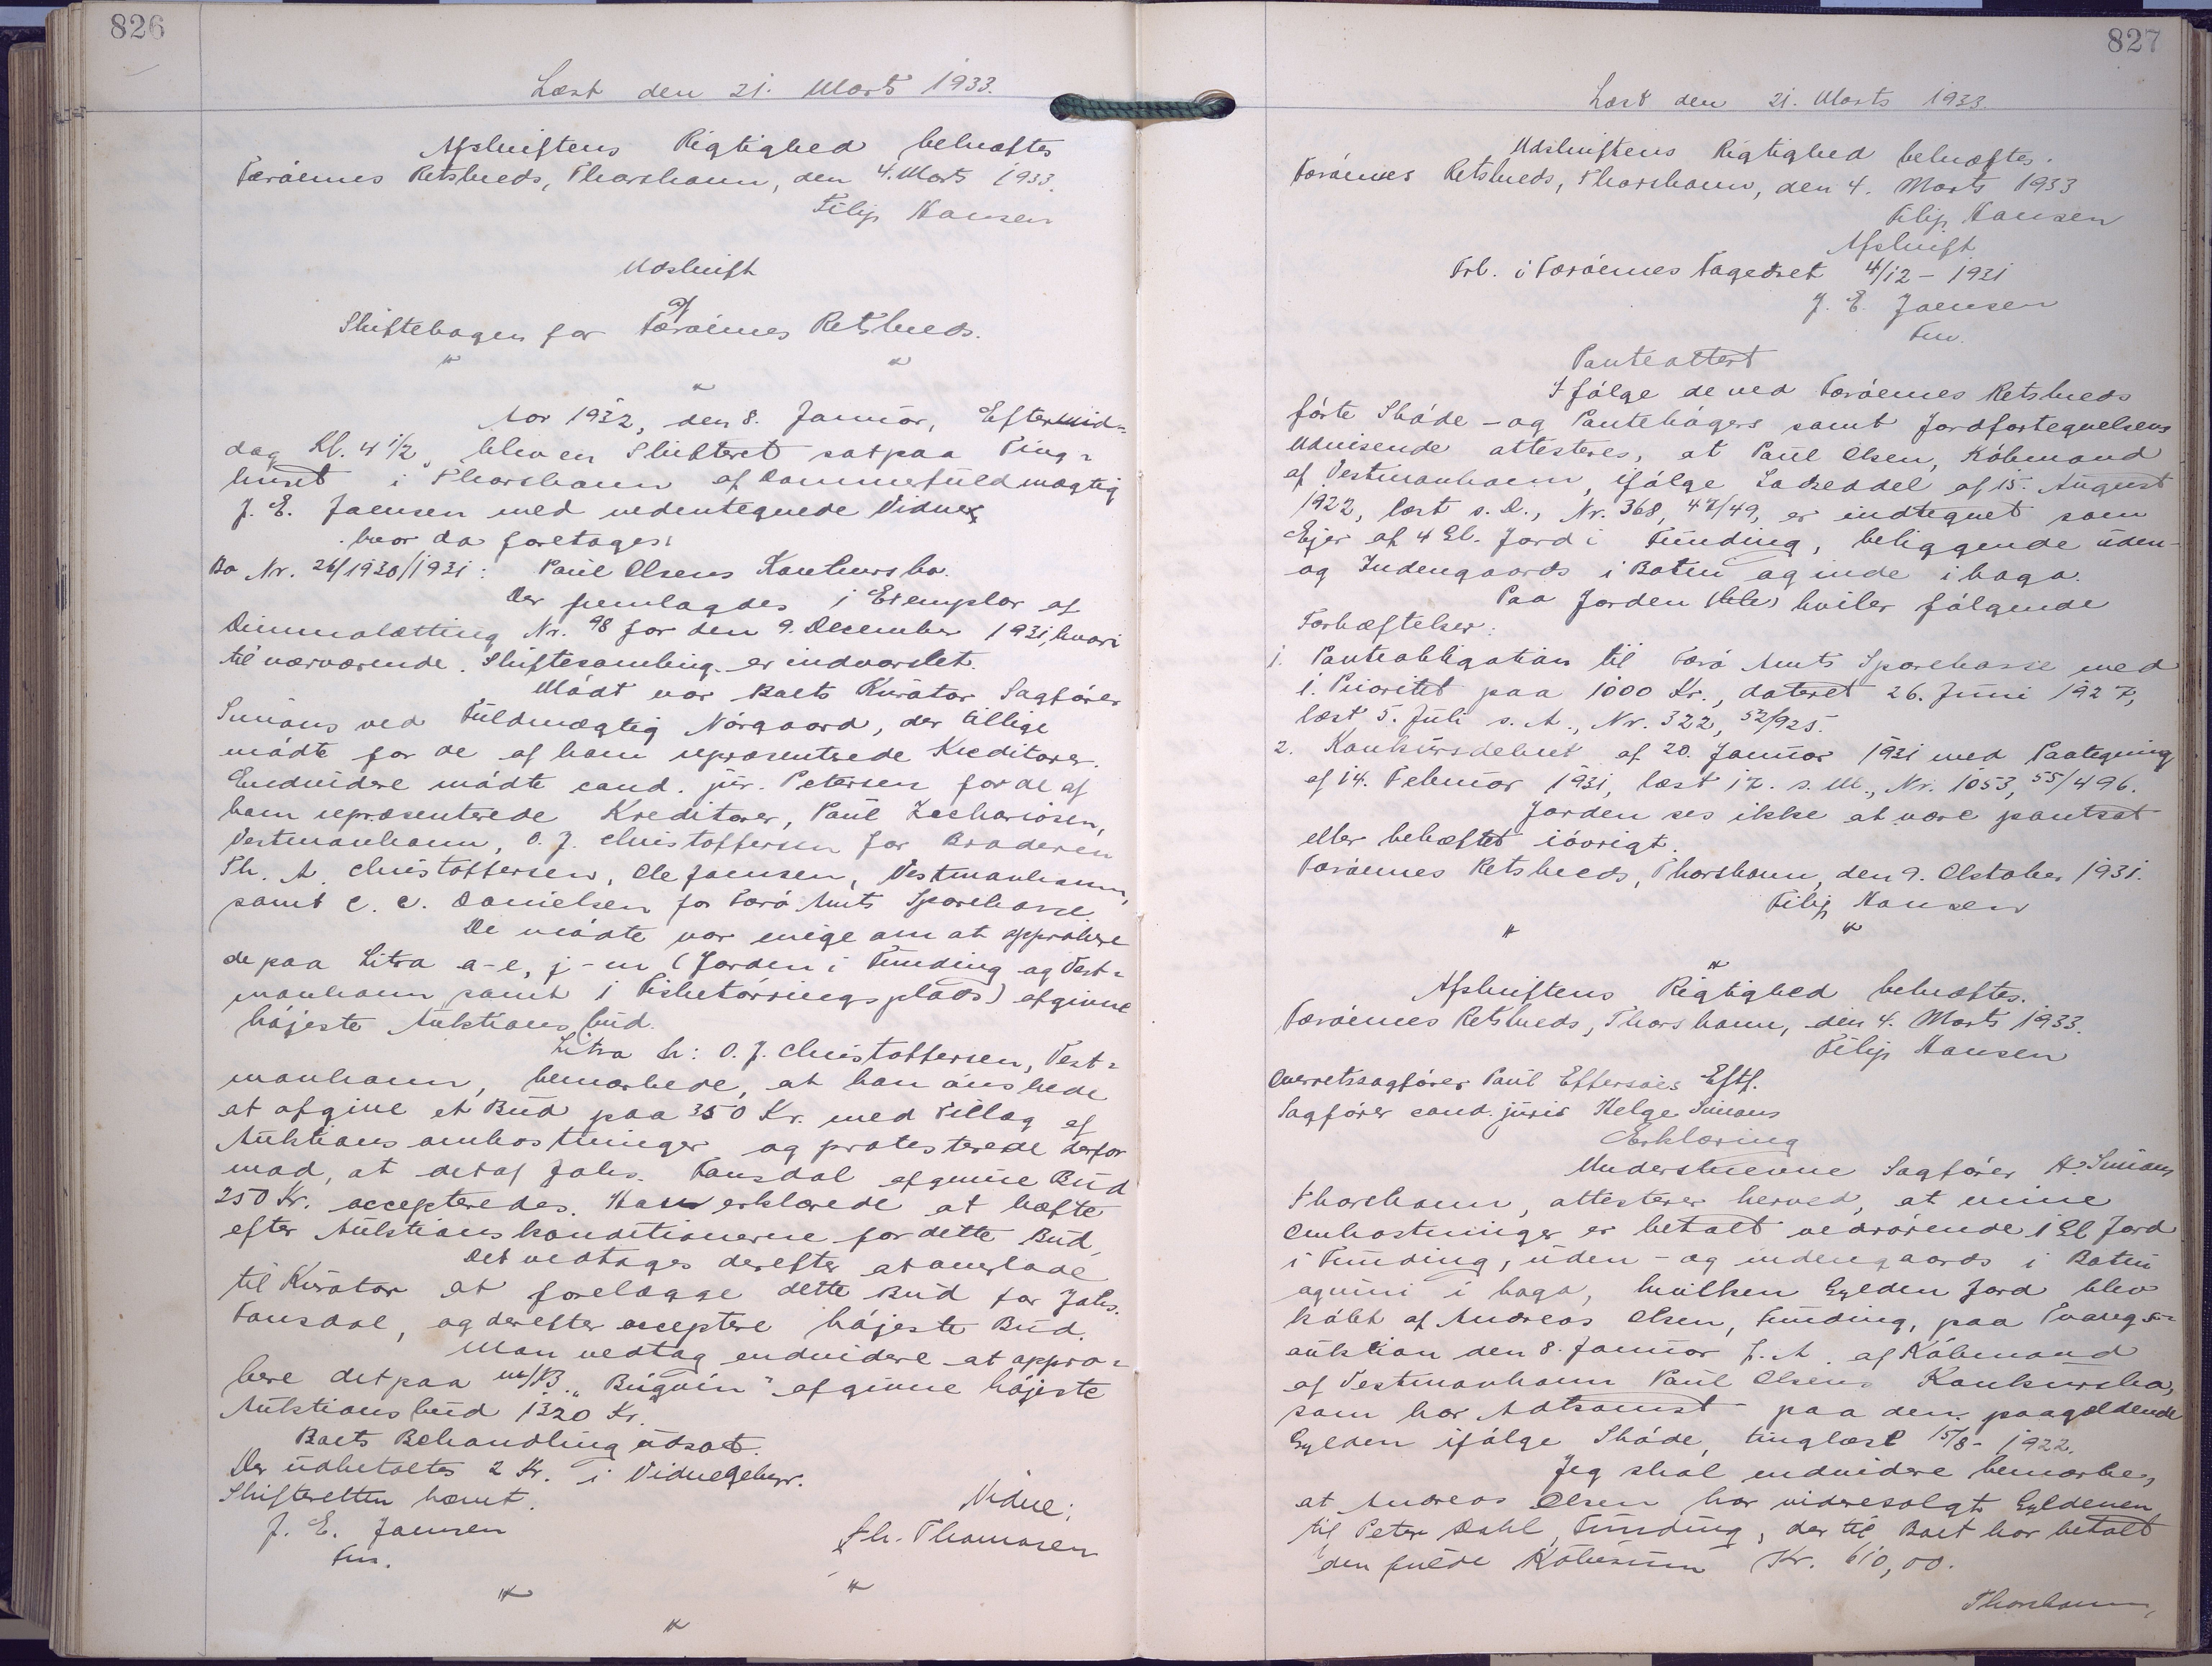 826
Læst den 21. Marts 1933.
Afskriftens Rigtighed bekræftes
Færøernes Retskreds, Thorshavn, den 4. Marts 1933.
Filip Hansen
Udskrift
af
Skiftebogen for Færøernes Retskreds.
Aar 1932, den 8. Januar, Eftermid-
dag Kl. 4 1/2, blev en Skifteret sat paa Ting-
huset i Thorshavn af Dommerfuldmægtig
J. E. Joensen med undertegnede Vidne
hvor da foretoges:
Bo Nr. 26/1930/1931: Paul Olsens Konkursbo.
Der fremlagdes 1 Exemplar af
Dimmalætting Nr. 98 for den 9. December 1931, hvori
til nærværende Skiftesamling er indvarslet.
Mødt var Boets Kurator Sagfører
Simóns ved Fuldmægtig Nørgaard, der tillige
mødte for de af ham repræsentrede Kreditorer.
Endvidere mødte cand. jur. Petersen for de af
ham repræsenterede Kreditorer, Paul Zachariasen,
Vestmanhavn, O. J. Christoffersen for Broderen
Th. A. Christoffersen, Ole Joensen, Vestmanhavn,
samt C. C. Danielsen for Færø Amts Sparekasse.
De mødte var enige om at approbere
de paa Litra a-e, j-m (Jorden i Funding og Vest-
manhavn samt 1 Fisketørringsplads) afgivne
højeste Auktionsbud.
Litra h: O. J. Christoffersen, Vest-
manhavn, bemærkede, at han ønskede
at afgive et Bud paa 350 Kr. med Tillæg af
Auktionsomkostninger og protesterede derfor
mod, at det af Johs. Fonsdal afgivne Bud
250 Kr. accepteredes. Han erklærede at hæfte
efter Auktionskonditionerne for dette Bud.
Det vedtoges derefter at overlade
til Kurator at forelægge dette Bud for Johs.
Fonsdal, og derefter acceptere højeste Bud.
Man vedtog endvidere at appro-
bere det paa m/B "Búgvin" afgivne højeste
Auktionsbud 1320 Kr.
Boets Behandling udsat.
Der udbetaltes 2 Kr. i Vidnegebyr.
Skifteretten hævet.
J. E. Joensen
Fm.
Vidne:
Th. Thomasen
827
Læst den 21. Marts 1933.
Udskriftens Rigtighed bekræftes.
Færøernes Retskreds, Thorshavn, den 4. Marts 1933
Filip Hansen
Afskrift
Frl. i Færøernes Fogedret 4/12 - 1931
J. E. Joensen
Fm.
Panteattest
Ifølge de ved Færøernes Retskreds
førte Skøde- og Pantebøgers samt Jordfortegnelsens
Udvisende attesteres, at Paul Olsen, Købmand
af Vestmanhavn, ifølge Laðseddel af 15. August
1922, læst s. D., Nr. 368, 47/49, er indtegnet som
Ejer af 4 Gl. Jord i Funding, beliggende uden-
og Indengaards i Botni og inde i haga.
Paa Jorden hviler følgende
Forhæftelser:
1. Panteobligation til Færø Amts Sparekasse med
1. Prioritet paa 1000 Kr., dateret 26. Juni 1927,
læst 5. Juli s. A., Nr. 322, 52/925.
2. Konkursdekret af 20. Januar 1931 med Paategning
af 14. Februar 1931, læst 17. s. M., Nr. 1053, 55/496.
Jorden ses ikke at være pantsat
eller behæftet iøvrigt.
Færøernes Retskreds, Thorshavn, den 9. Oktober 1931.
Filip Hansen
Afskriftens Rigtighed bekræftes.
Færøernes Retskreds, Thorshavn, den 4. Marts 1933.
Filip Hansen
Overretssagfører Paul Effersøes Eftf.
Sagfører cand. juris Helge Simóns
Erklæring
Underskrevne Sagfører H. Simóns
Thorshavn, attesterer herved, at mine
Omkostninger er betalt vedrørende 1 Gl Jord
i Funding, uden- og indengaards i Botni
og inni i haga, hvilken Gylden Jord blev
købt af Andreas Olsen, Funding, paa Tvangs-
auktion den 8. Januar f. A. af Købmand
af Vestmanhavn Paul Olsens Konkursbo,
som har Adkomst paa den paagældende
Gylden ifølge Skøde, tinglæst 15/8- 1922.
Jeg skal endvidere bemærke,
at Andreas Olsen har videresolgt Gyldenen
til Peter Dahl, Funding, der til Boet har betalt
den fulde Købesum Kr. 610,00.
Thorshavn,